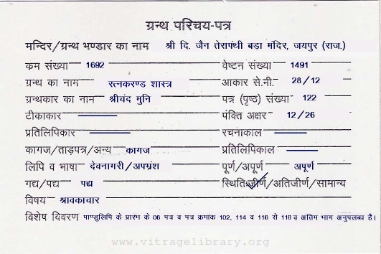 ग्रन्थ परिचय-पत्र
मन्दिर/ग्रन्थ भण्डार का नाम श्री दि. जैन तेरापंथी बडा मंदिर, जयपुर (राज.)
क्रम संख्या 1692 वेष्टन संख्या 1491
ग्रन्थ का नाम रत्नकरण्ड शास्त्र आकार से.मी. 28/12
ग्रन्थकार का नाम श्रीचंद मुनि पत्र (पृष्ठ) संख्या 122
टीकाकार पंक्ति अक्षर 12/26
प्रतिलिपिकार रचनाकाल
कागज/ताड़पत्र/अन्य कागज प्रतिलिपिकाल
लिपि व भाषा देवनागरी/अपभ्रंश पूर्ण/अपूर्ण अपूर्ण
गद्य/पद्य पद्य स्थिति जीर्ण/अतिजीर्ण/सामान्य
विषय श्रावकाचार
विशेष विवरण पाण्डुलिपि के प्रारंभ के 06 पत्र व पत्र क्रमांक 102, 114 व 116 से 118 व अंतिम भाग अनुपलब्ध है।
www.vitragelibrary.org